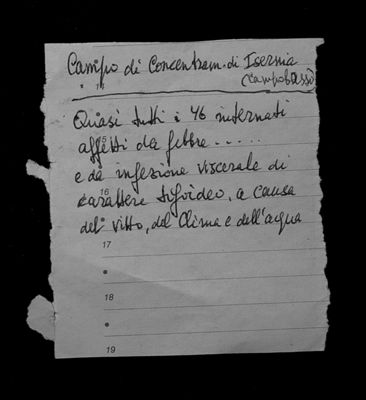 Campo di Concentram. di Isernia
(Campobasso)
Quasi tutti i 46 internati
affetti da febbre . . . . . .
e da infezione viscerale di
carattere tifoideo, a causa
del vitto, del Clima e dell'acqua
15
16
17
18
19